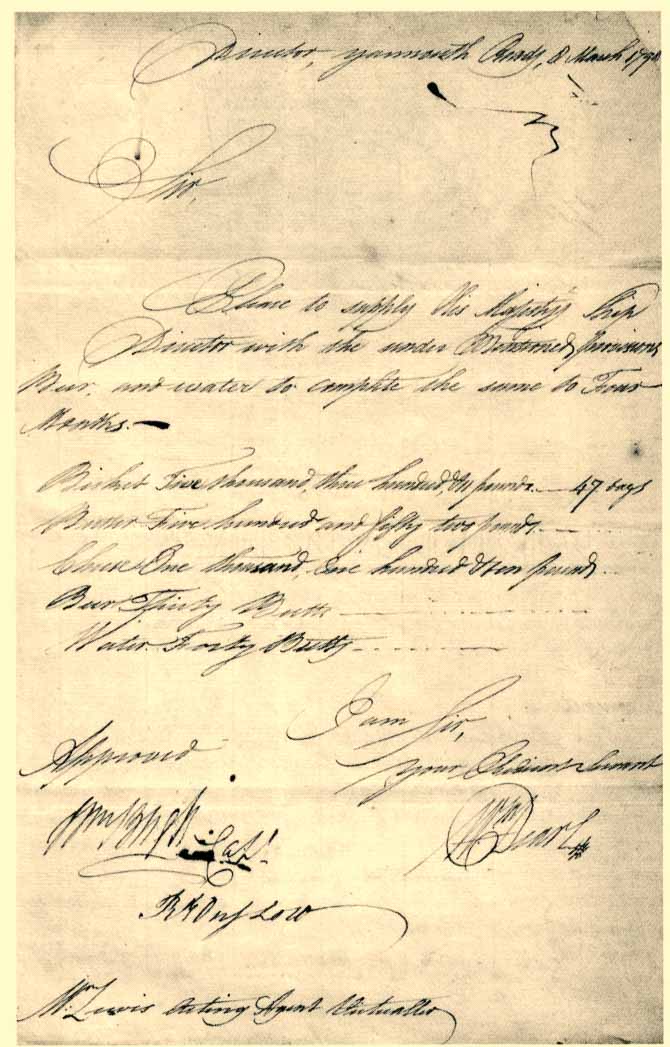 Director, yarmouth Roads, 8 March 179
Sir,
Please to supply His Majesty's Ship
Director with the under Mentioned provisions
Beer, and water to complete the same to Four
Months.
Bisket Five thousand, three hundred, & pounds. 47 bags
Butter Five hundred and fifty two pounds
Cheese One thousand, one hundred & ten pounds
Beer Thirty Butts
Water Forty Butts
I am Sir,
Approved
your Obedient Servant
Wm Bligh Capt.
Wm Pearl
R Onslow
Mr. Lewis Acting Agent Victualler